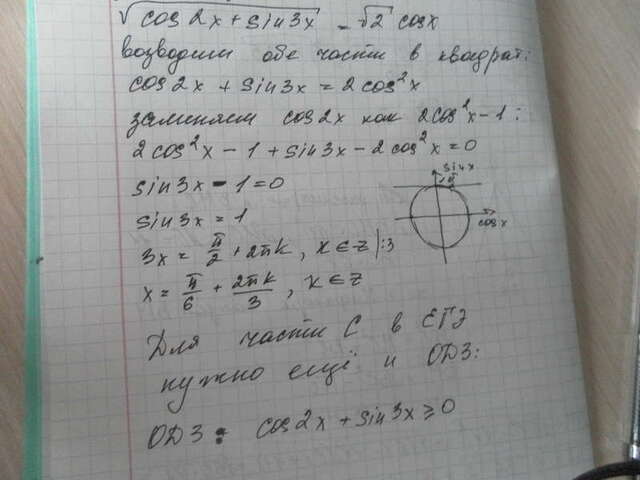 √cos2x + sin3x = √2 cosx
возводим обе части в квадрат:
cos2x + sin3x = 2cos²x
заменяем cos2x как 2cos²x-1:
2cos²x - 1 + sin3x - 2cos²x = 0
sin3x - 1 = 0
sin x
cos x
sin3x = 1
3x = π/2 + 2πk, x ∈ z |:3
x = π/6 + 2πk/3, x ∈ z
Для части С в ЕГЭ
нужно ещё и ОДЗ:
ОДЗ: cos2x + sin3x ≥ 0